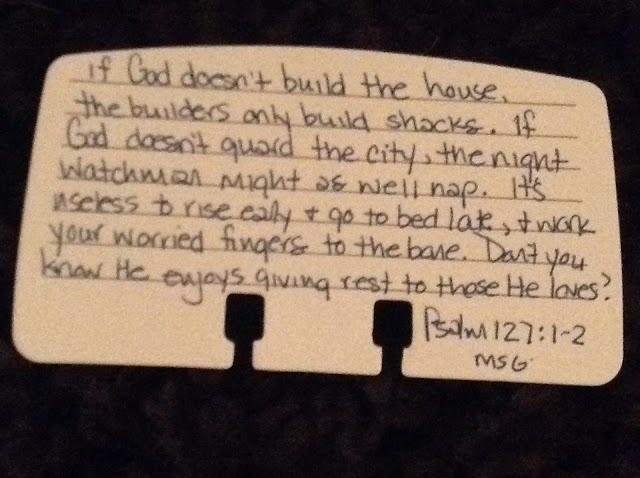 if God doesn't build the house,
the builders only build shacks. If
God doesn't guard the city, the night
watchman might as well nap. It's
useless to rise early + go to bed late, + work
your worried fingers to the bone. Don't you
know He enjoys giving rest to those He loves?
Psalm 127:1-2
MSG